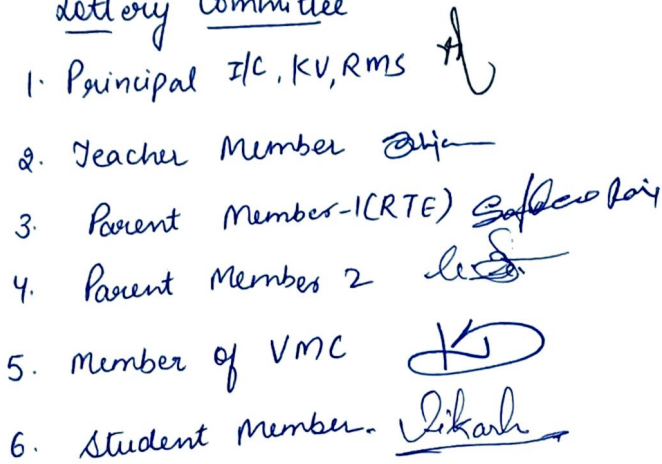 Lottery Committee
1. Principal I/C, KV, RMS
2. Teacher Member
3. Parent Member-1(RTE)
4. Parent Member 2
5. Member of VMC
6. Student Member. Vikash